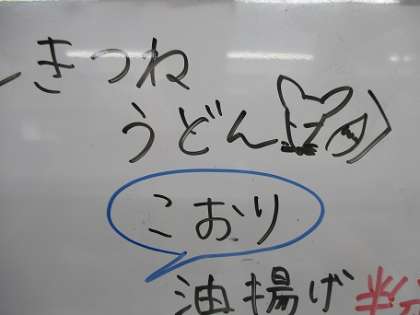 きつね
うどん
こおり
油揚げ